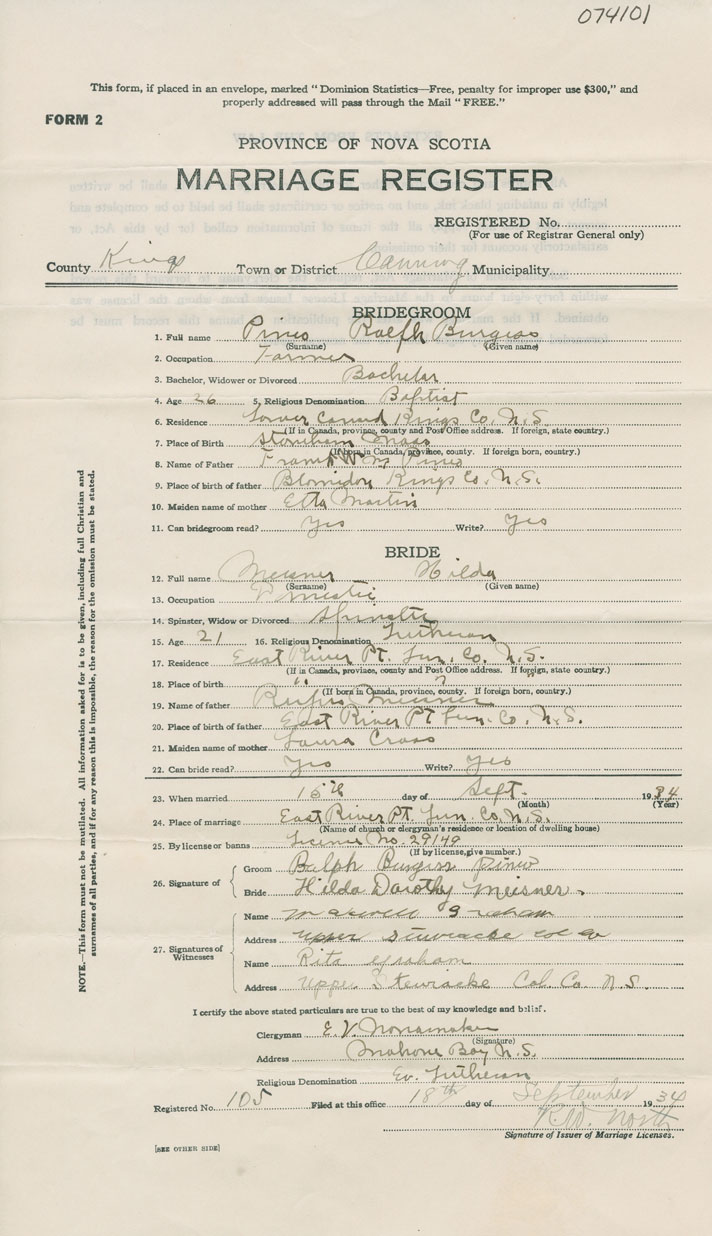 074101
This form, if placed in an envelope, marked "Dominion Statistics—Free, penalty for improper use $300," and
properly addressed will pass through the Mail "FREE."
FORM 2
PROVINCE OF NOVA SCOTIA
MARRIAGE REGISTER
REGISTERED No.
(For use of Registrar General only)
County Kings Town or District Canning Municipality
BRIDEGROOM
1. Full name Pineo Ralph Burgess
(Surname) (Given name)
2. Occupation Farmer
3. Bachelor, Widower or Divorced Bachelor
4. Age 26 5. Religious Denomination Baptist
6. Residence Lower Canard Kings Co. N.S.
(If in Canada, province, county and Post Office address. If foreign, state country.)
7. Place of Birth Stoneham Mass
(If born in Canada, province, county. If foreign born, country.)
8. Name of Father Frank Wm Pineo
9. Place of birth of father Blomidon Kings Co. N.S.
10. Maiden name of mother Etta Martin
11. Can bridegroom read? Yes Write? Yes
BRIDE
12. Full name Meisner Hilda
(Surname) (Given name)
13. Occupation Domestic
14. Spinster, Widow or Divorced Spinster
15. Age 21 16. Religious Denomination Lutheran
17. Residence East River Pt. Lun. Co. N.S.
(If in Canada, province, county and Post Office address. If foreign, state country.)
18. Place of birth " " "
(If born in Canada, province, county. If foreign born, country.)
19. Name of father Rufus Meisner
20. Place of birth of father East River Pt Lun. Co. N.S.
21. Maiden name of mother Laura Cross
22. Can bride read? Yes Write? Yes
23. When married 15th day of Sept. 1934
(Month) (Year)
24. Place of marriage East River Pt. Lun. Co. N.S.
(Name of church or clergyman's residence or location of dwelling house)
25. By license or banns License No. 29140
(If by license, give number.)
26. Signature of Groom Ralph Burgess Pineo
Bride Hilda Dorothy Meisner.
27. Signatures of Witnesses
Name Maxwell Graham
Address Upper Stewiacke Col Co
Name Rita Graham
Address Upper Stewiacke Col. Co. N.S.
I certify the above stated particulars are true to the best of my knowledge and belief.
Clergyman E. V. Nonamaker
(Signature)
Address Mahone Bay N.S.
Religious Denomination Ev. Lutheran
Registered No. 105 Filed at this office 18th day of September 1934
R.W. North
Signature of Issuer of Marriage Licenses.
[SEE OTHER SIDE]
NOTE.—This form must not be mutilated. All information asked for is to be given, including full Christian and
surnames of all parties, and if for any reason this is impossible, the reason for the omission must be stated.